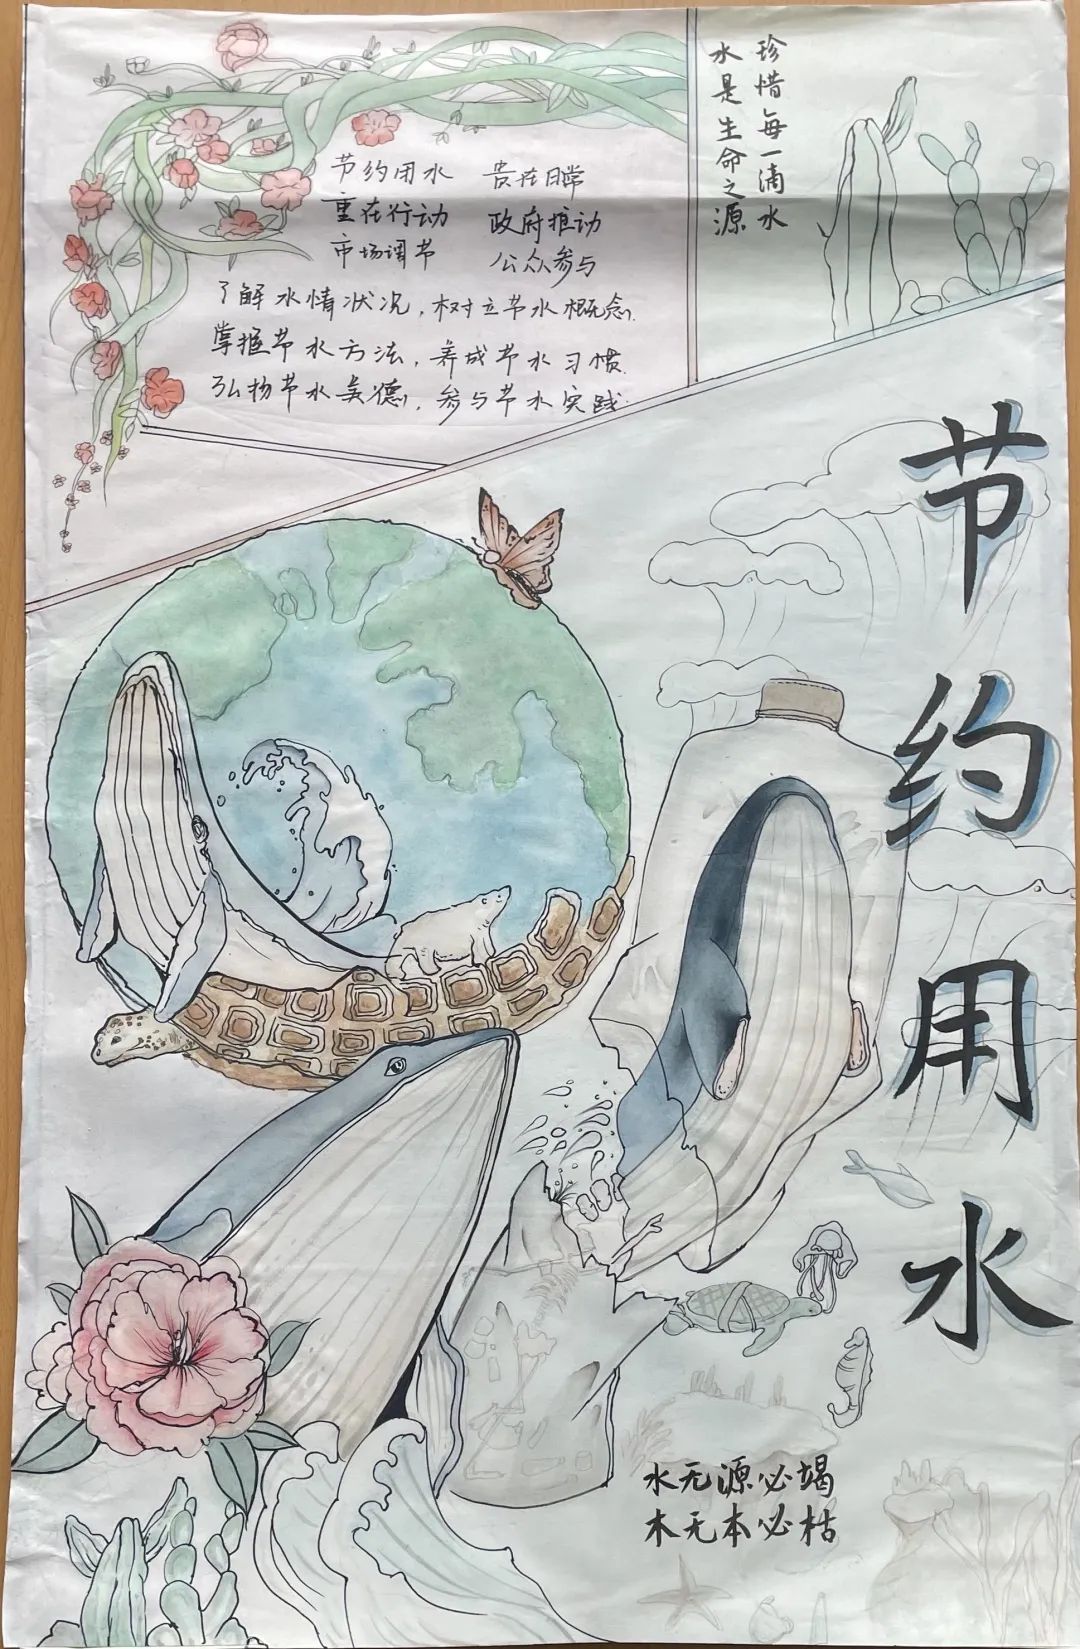 珍惜每一滴水
水是生命之源
节约用水 贵在日常
重在行动 政府推动
市场调节 公众参与
了解水情状况，树立节水概念.
掌握节水方法，养成节水习惯.
弘扬节水美德，参与节水实践.
节约用水
水无源必竭
木无本必枯